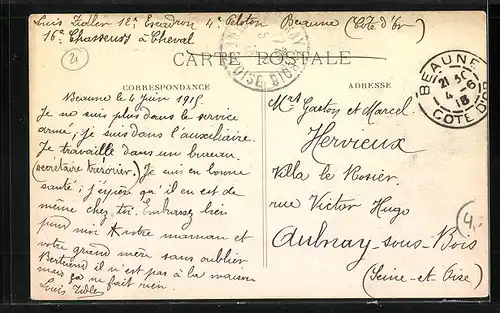 Louis Zidler 12e Escadron 4e Peloton Beaune (Côte d'Or)
16e Chasseurs à Cheval
21
CARTE POSTALE
CORRESPONDANCE
Beaune le 4 juin 1915
Je ne suis plus dans le service
armé, je suis dans l'auxiliaire.
Je travaille dans un bureau.
(secrétaire trésorier.) Je suis en bonne
santé; j'espère qu'il en est de
même chez toi. Embrassez bien
pour moi votre maman et
votre grand mère sans oublier
Bertrand il n'est pas à la maison
mais ça ne fait rien.
Louis Zidler
ADRESSE
Mrs Gaston et Marcel
Hervieux
Villa le Rosier
rue Victor Hugo
Aulnay-sous-Bois
(Seine-et-Oise)
BEAUNE
21 30
4 -6
15
COTE D'OR
4,-